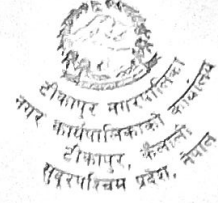 टीकापुर नगरपालिका
नगर कार्यपालिकाको कार्यालय
टीकापुर, कैलाली
सुदूरपश्चिम प्रदेश, नेपाल